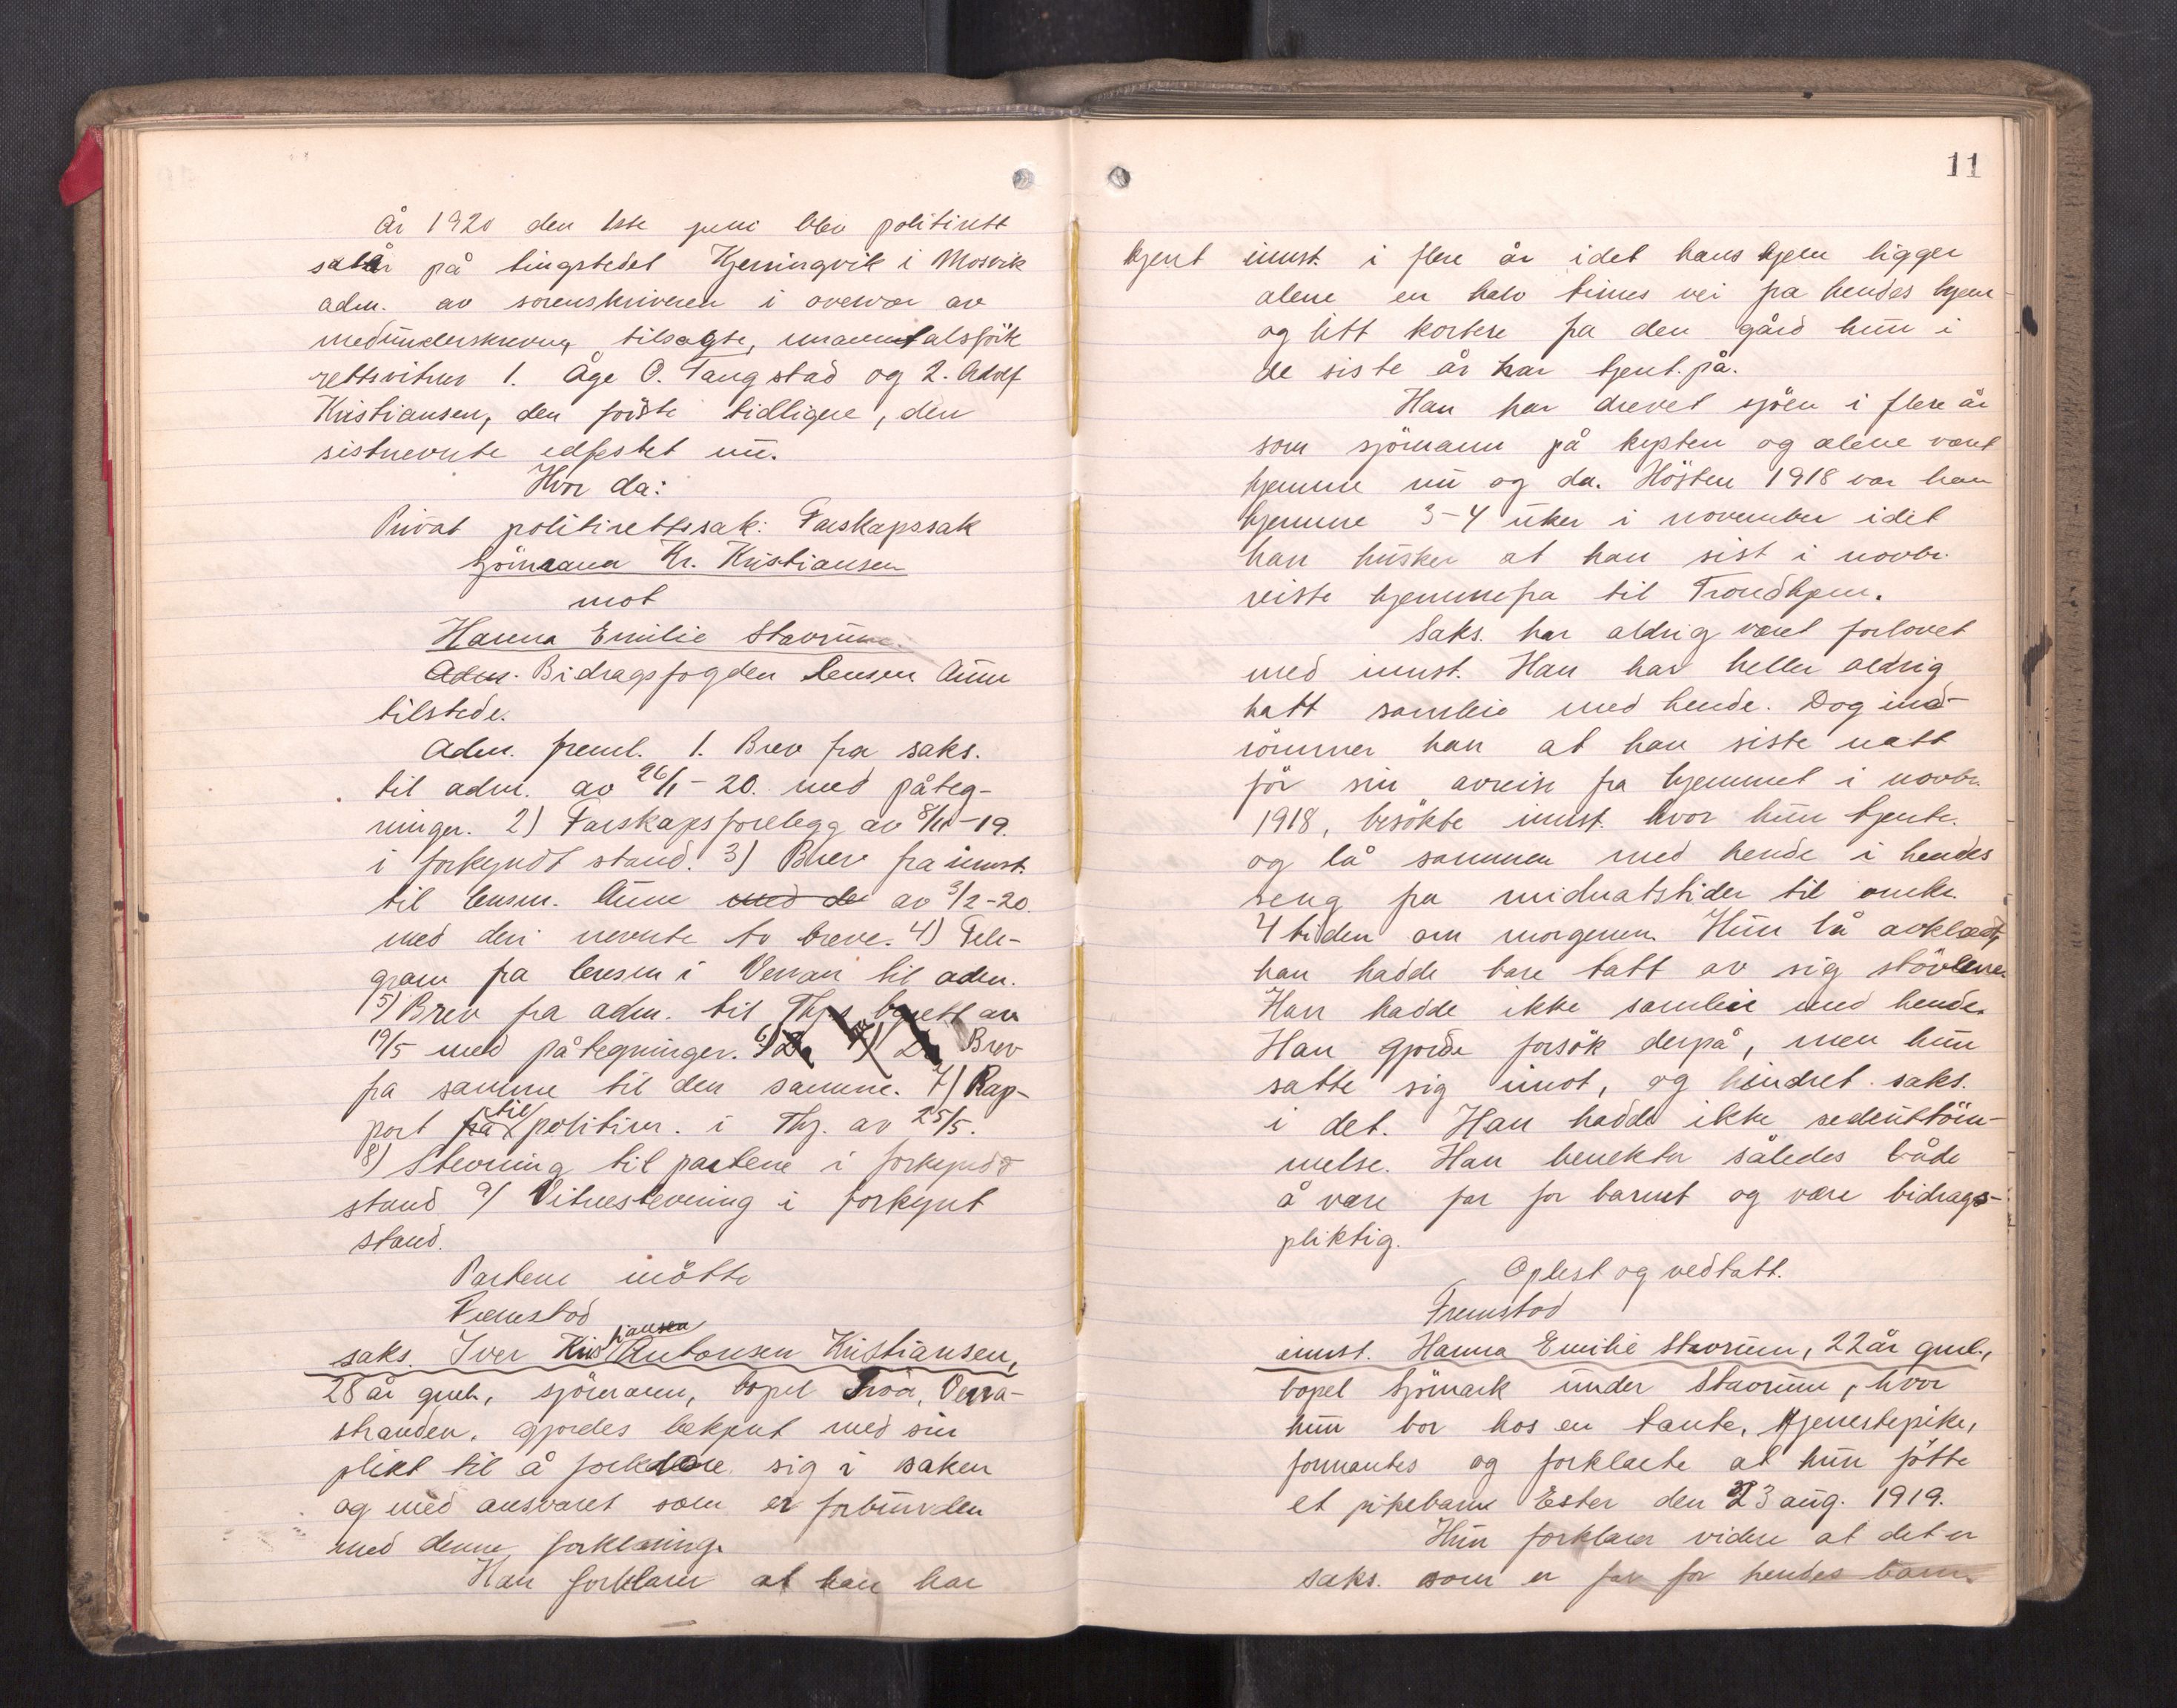 År 1920 den 1ste juni blev politirett
satt på tingstedet Kjerringvik i Mosvik
adm. av sorenskriveren i overvær av
medunderskrevne tilsagte, unavntalsförte
rettsvitner 1. Åge O. Tangstad og 2. Adolf
Kristiansen, den förste tidligere, den
sistnevnte edfestet nu.
Hvor da:
Privat politirettssak: Farskapssak
Sjömann Kr. Kristiansen
mot
Hanna Emilie Stavrum.
Adm. Bidragsfogden lensm. Aune
tilstede.
Adm. freml. 1. Brev fra saks.
til adm. av 26/1-20. med påteg-
ninger. 2) Farskapsforelegg av 8/11-19.
i forkyndt stand. 3) Brev fra innst.
til lensm. Aune med de av 3/2-20.
med deri nevnte to breve. 4) Tele-
gram fra lensm i Verran til adm.
5) Brev fra adm. til Thjs byrett av
19/5 med påtegninger. 6) Brev
fra samme til den samme. 7) Rap-
port fra til politim. i Thj. av 25/5.
8) Stevning til partene i forkyndt
stand 9) Vitnestevning i forkynt
stand.
Partene mötte
Fremstod
saks. Iver Kristiansen Antonsen Kristiansen,
28 år gml., sjömann, bopel Verra-
stranden. Gjordes bekjent med sin
plikt til å forklare sig i saken
og med ansvaret som er forbunden
med denne forklaring.
Han forklarer at han har
11
kjent innst. i flere år idet hans hjem ligger
alene en halv times vei fra hendes hjem
og litt kortere fra den gård hun i
de siste år har tjent på.
Han har drevet sjöen i flere år
som sjömann på kysten og alene været
hjemme nu og da. Hösten 1918 var han
hjemme 3-4 uker i november idet
han husker at han sist i novbr.
reiste hjemmefra til Trondhjem.
Saks. har aldrig været forlovet
med innst. Han har heller aldrig
hatt samleie med hende. Dog ind-
römmer han at han siste natt
för sin avreise fra hjemmet i novbr.
1918, besökte innst. hvor hun tjente.
og lå sammen med hende i hendes
seng fra midnatstider til omkr.
4 tiden om morgenen. Hun lå avklædt,
han hadde bare tatt av sig stövlene.
Han hadde ikke samleie med hende.
Han gjorde forsök derpå, men hun
satte sig imot, og hindret saks.
i det. Han hadde ikke sedenttöm-
melse. Han benekter således både
å være far for barnet og være bidrags-
pliktig.
Oplest og vedtatt.
Fremstod
innst. Hanna Emilie Stavrum, 22 år gml.,
bopel Sjömark under Stavrum, hvor
hun bor hos en tante, tjenestepike,
formantes og forklarte at hun fötte
et pikebarn Ester den 23 aug. 1919.
Hun forklarer videre at det er
saks. som er far for hendes barn.